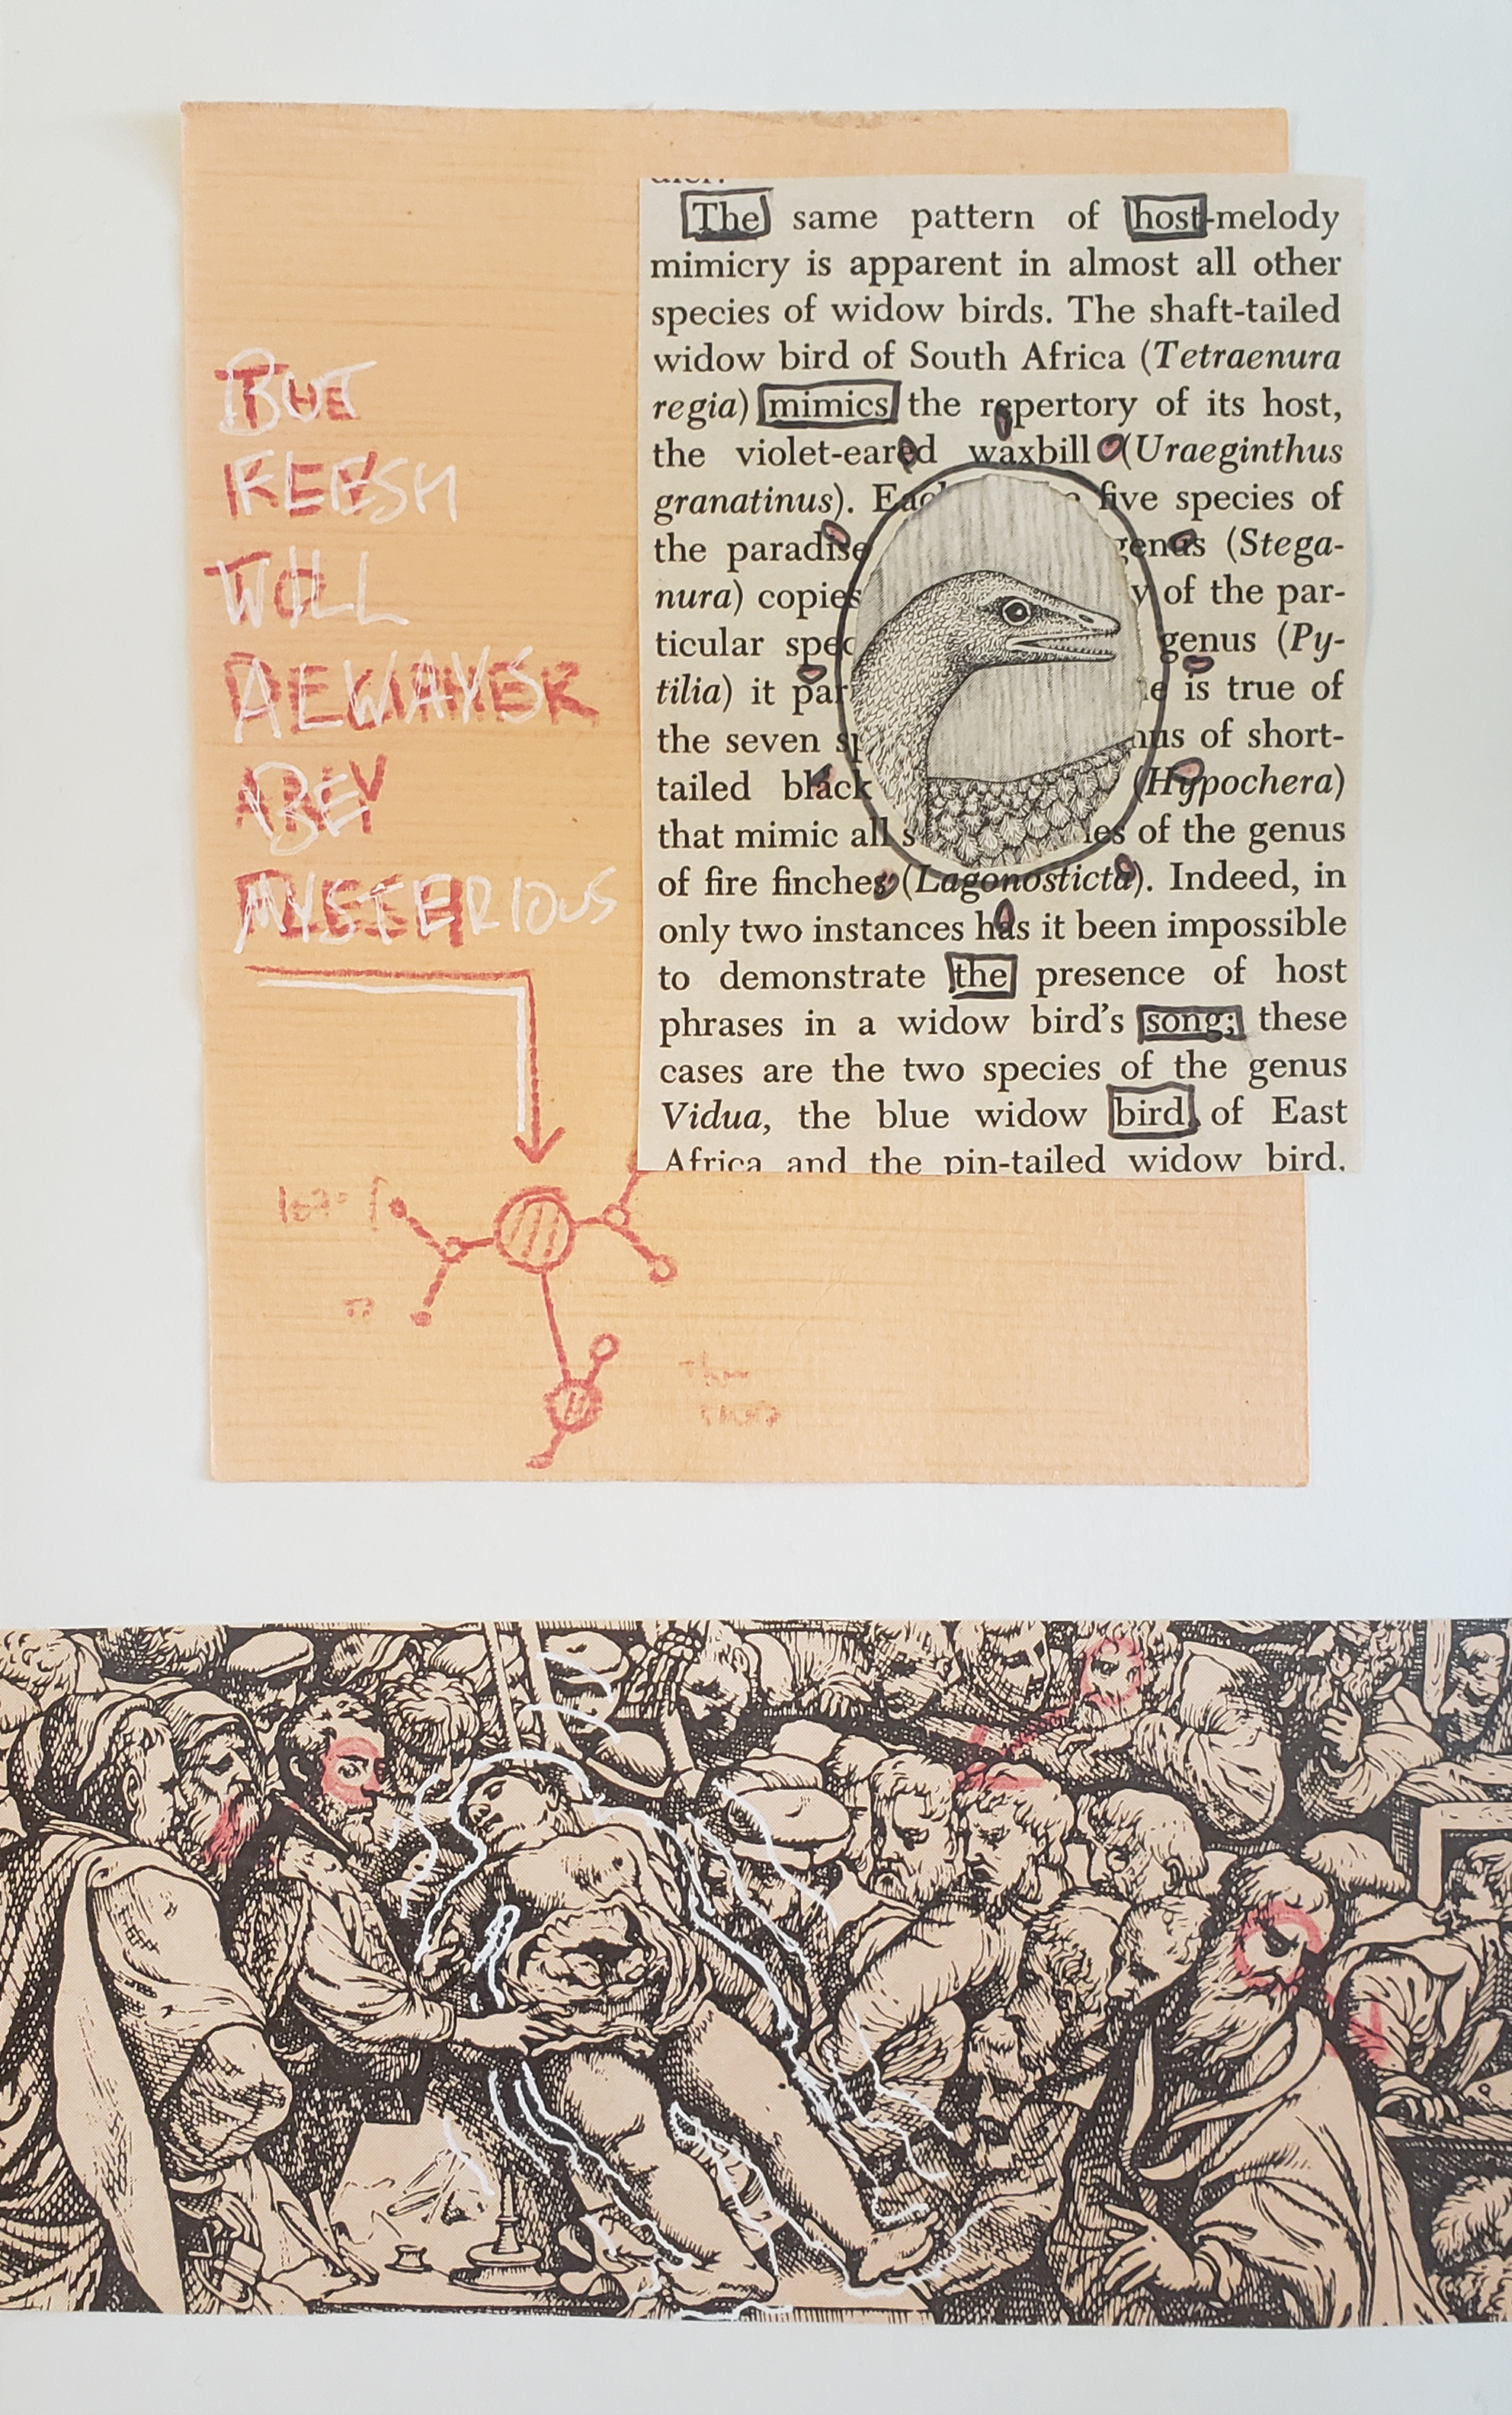 BUT
FLESH
WILL
ALWAYS
BE
MYSTERIOUS
The same pattern of host-melody
mimicry is apparent in almost all other
species of widow birds. The shaft-tailed
widow bird of South Africa (Tetraenura
regia) mimics the repertory of its host,
the violet-eared waxbill (Uraeginthus
granatinus). five species of
the paradise genus (Stega-
nura) copies of the par-
ticular genus (Py-
tilia) it is true of
the seven of short-
tailed black (Hypochera)
that mimic all of the genus
of fire finches (Lagonosticta). Indeed, in
only two instances has it been impossible
to demonstrate the presence of host
phrases in a widow bird's song; these
cases are the two species of the genus
Vidua, the blue widow bird of East
Africa and the pin-tailed widow bird.